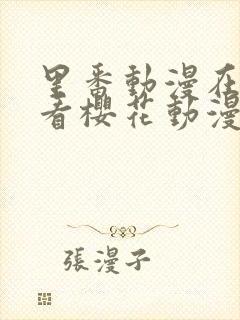 里番動漫在
看櫻花動漫
張漫子